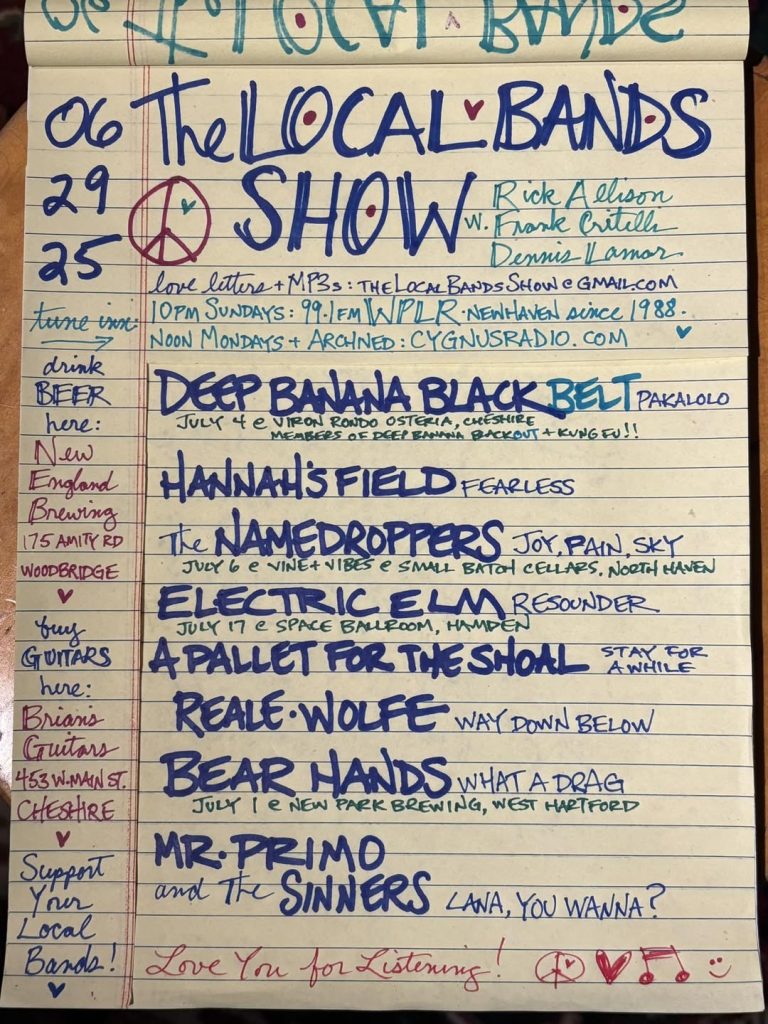 The LOCAL BANDS
SHOW
w. Rick Allison
Frank Critelli
Dennis Lamar
06
29
25
love letters + MP3s: THELOCALBANDSSHOW@GMAIL.COM
tune in:
10PM SUNDAYS: 99.1FM WPLR • NEWHAVEN since 1988.
NOON MONDAYS + ARCHIVED: CYGNUSRADIO.COM
drink
BEER
here:
New
England
Brewing
175 AMITY RD
WOODBRIDGE
buy
GUITARS
here:
Brian's
Guitars
453 W. MAIN ST.
CHESHIRE
Support
Your
Local
Bands!
DEEP BANANA BLACK BELT PAKALOLO
JULY 4 @ VIRON RONDO OSTERIA, CHESHIRE
MEMBERS OF DEEP BANANA BLACKOUT + KUNG FU!!
HANNAH'S FIELD FEARLESS
The NAMEDROPPERS JOY, PAIN, SKY
JULY 6 @ VINE + VIBES @ SMALL BATCH CELLARS, NORTH HAVEN
ELECTRIC ELM RESOUNDER
JULY 17 @ SPACE BALLROOM, HAMDEN
A PALLET FOR THE SHOAL STAY FOR
A WHILE
REALE • WOLFE WAY DOWN BELOW
BEAR HANDS WHAT A DRAG
JULY 1 @ NEW PARK BREWING, WEST HARTFORD
MR. PRIMO
and The SINNERS LANA, YOU WANNA?
Love You for Listening!